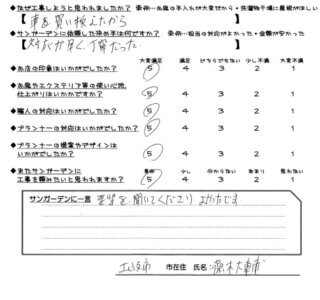 ◆なぜ工事しようと思われましたか？ 要例…お庭の手入れが大変だから・洗濯物干場に屋根がほしい
【車を買い換えたから】
◆サンガーデンに依頼した決め手は何ですか？ 要例…担当の対応がよかった・金額が安かった
【対応が早く、丁寧だった】
大変満足 満足 どちらでもない 少し不満 大変不満
◆お店の印象はいかがでしたか？ 5 4 3 2 1
◆お庭やエクステリア等の使い心地、
仕上がりはいかがですか？ 5 4 3 2 1
◆職人の対応はいかがでしたか？ 5 4 3 2 1
◆プランナーの対応はいかがでしたか？ 5 4 3 2 1
◆プランナーの提案やデザインは
いかがでしたか？ 5 4 3 2 1
是非 少し 分からない あまり 思わない
◆またサンガーデンに
工事を頼みたいと思われますか？ 5 4 3 2 1
サンガーデンに一言 要望を聞いてくださり よかったです
市在住 氏名